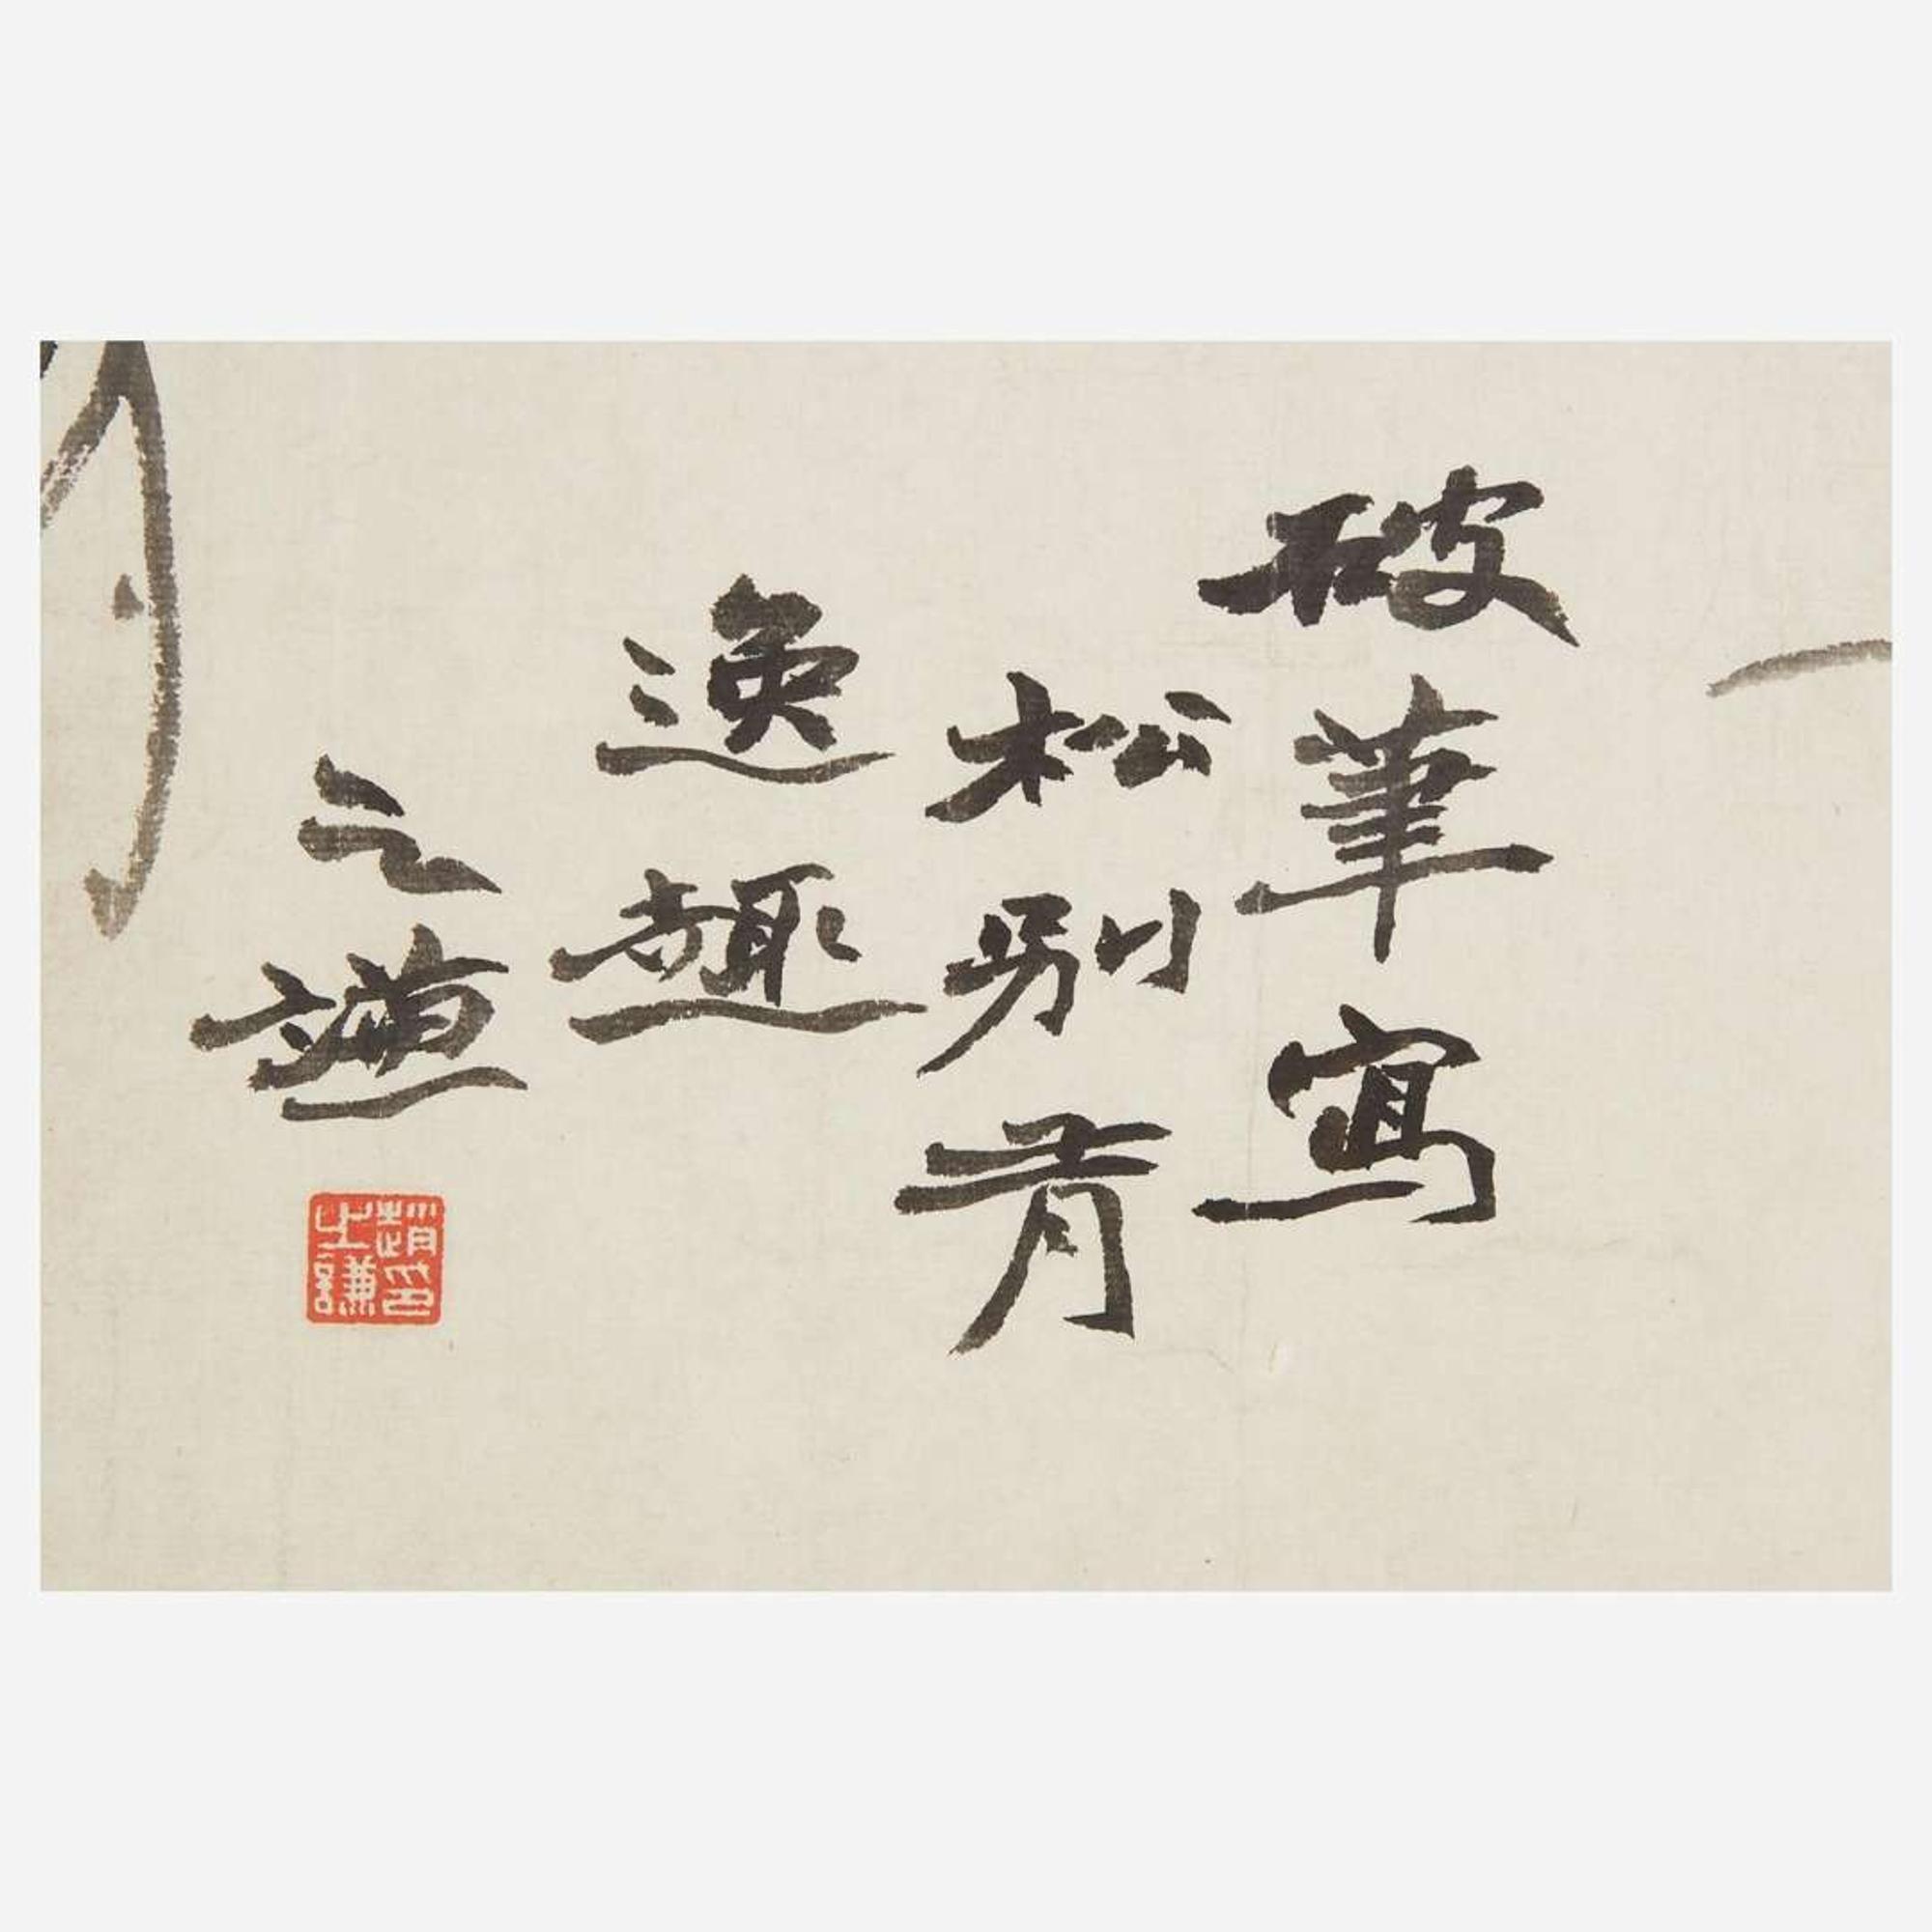 破筆寫
松別有
逸趣
之謙
趙之謙印